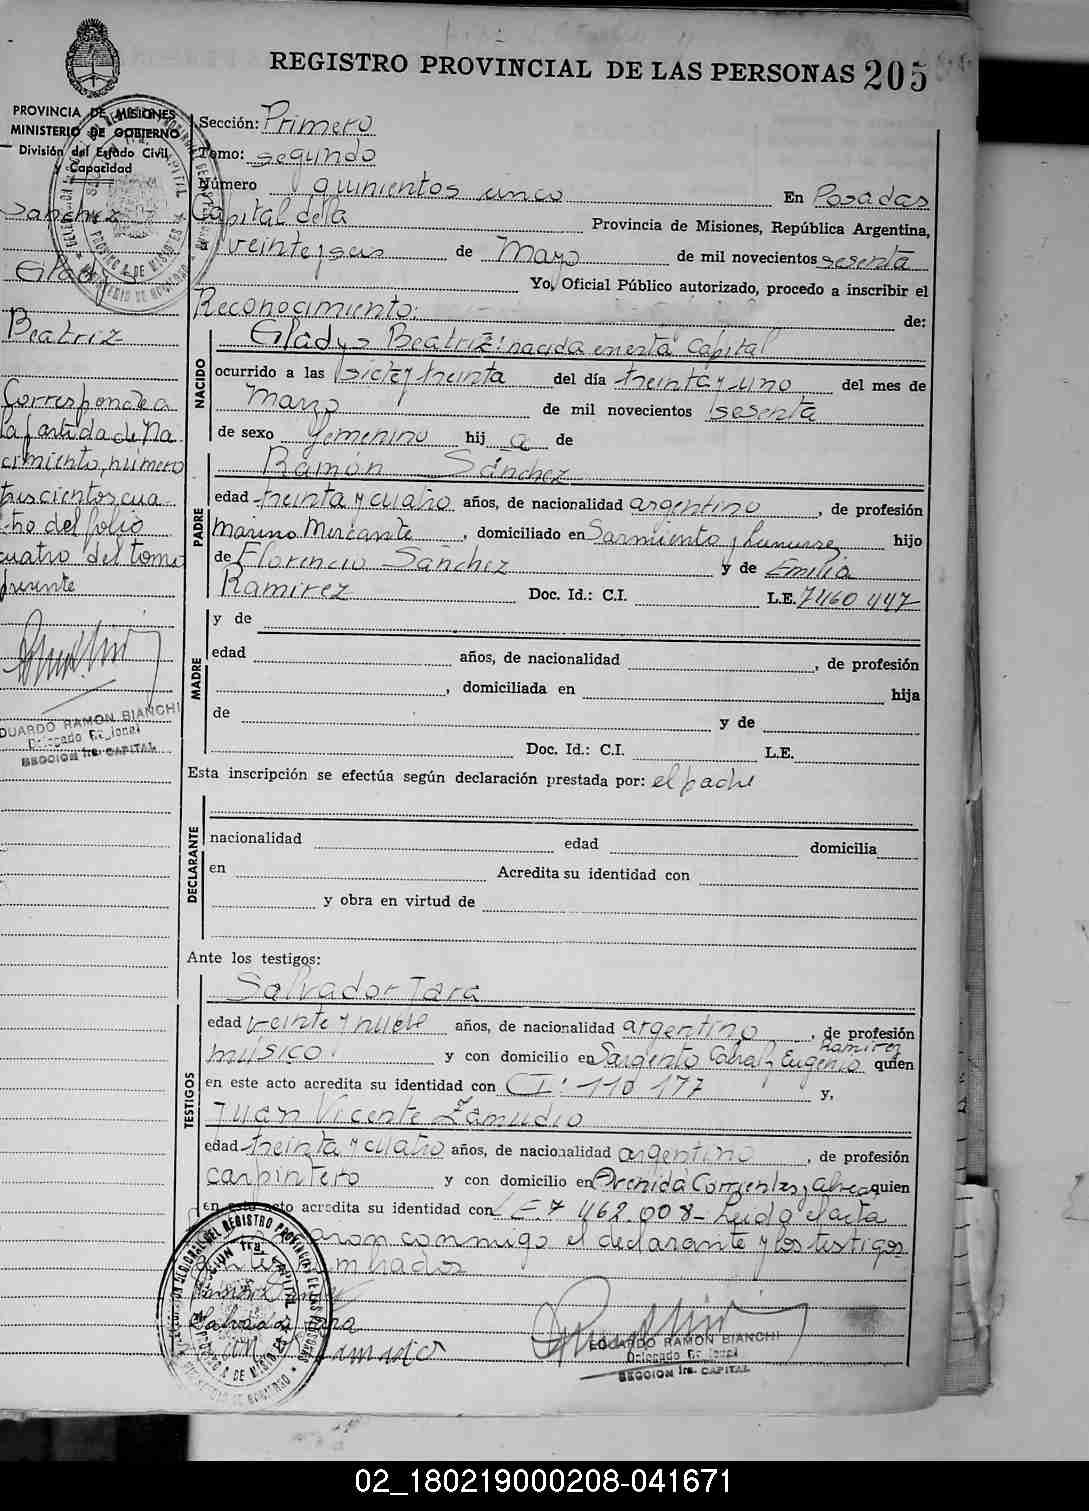 REGISTRO PROVINCIAL DE LAS PERSONAS 205
PROVINCIA DE MISIONES
MINISTERIO DE GOBIERNO
División del Estado Civil
y Capacidad
Sánchez
Gladys
Beatriz
Corresponde a
la partida de Na
cimiento, número
trescientos cua
tro del folio
cuatro del tomo
presente
EDUARDO RAMON BIANCHI
Delegado Regional
SECCION 1ra. CAPITAL
Sección: Primero
Tomo: segundo
Número quinientos cinco En Posadas
Capital de la Provincia de Misiones, República Argentina,
veinteseis de Mayo de mil novecientos sesenta
Yo, Oficial Público autorizado, procedo a inscribir el
Reconocimiento: de:
NACIDO
Gladys Beatriz: nacida en esta Capital
ocurrido a las siete y treinta del día treinta y uno del mes de
marzo de mil novecientos sesenta
de sexo femenino hij a de
PADRE
Ramón Sánchez
edad treinta y cuatro años, de nacionalidad argentino, de profesión
Marino Mercante, domiciliado en Sarmiento y hijo
de Florencio Sánchez y de Emilia
Ramirez Doc. Id.: C.I. L.E. 7460447
MADRE
y de
edad años, de nacionalidad, de profesión
, domiciliada en hija
de y de
Doc. Id.: C.I. L.E.
Esta inscripción se efectúa según declaración prestada por: el padre
DECLARANTE
nacionalidad edad domicilia
en Acredita su identidad con
y obra en virtud de
Ante los testigos:
TESTIGOS
Salvador Jara
edad veinte y nueve años, de nacionalidad argentino, de profesión
Ramirez
músico y con domicilio en Sargento Cabral y Eugenio quien
en este acto acredita su identidad con CI: 110 177 y,
Juan Vicente Zamudio
edad treinta y cuatro años, de nacionalidad argentino, de profesión
carpintero y con domicilio en Avenida Corrientes y quien
en este acto acredita su identidad con LE. 7 462.008 - Leida el acta
conmigo el declarante y los testigos
Salvador Jara
EDUARDO RAMON BIANCHI
Delegado Regional
SECCION 1ra. CAPITAL
02_180219000208-041671